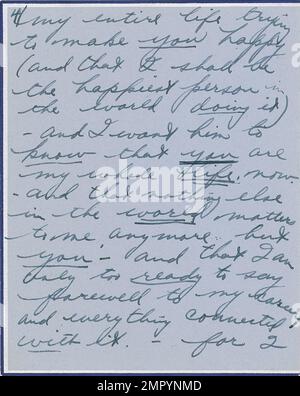 4/ my entire life trying
to make you happy
(and that I shall be
the happiest person in
the world doing it)
- and I want him to
know that you are
my whole life, now
- and that nothing else
in the world matters
to me anymore. but
you - and that I am
only too ready to say
farewell to my career
and everything connected
with it. - for 2
a
alamy
Image ID: 2MPYNMD
www.alamy.com